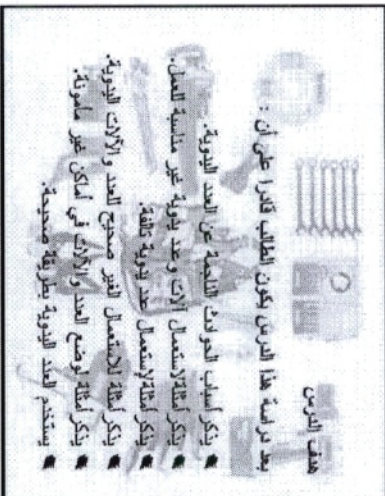 هدف الدرس
بعد دراسة هذا الدرس يكون الطالب قادرا على أن :
يذكر أسباب الحوادث الناجمة عن العدد اليدوية.
يذكر أمثلة لإستعمال آلات وعدد يدوية غير مناسبة للعمل.
يذكر أمثلة لإستعمال عدد يدوية تالفة.
يذكر أمثلة للاستعمال الغير صحيح للعدد والآلات اليدوية.
يذكر أمثلة لوضع العدد والآلات في أماكن غير مأمونة.
يستخدم العدد اليدوية بطريقة صحيحة.